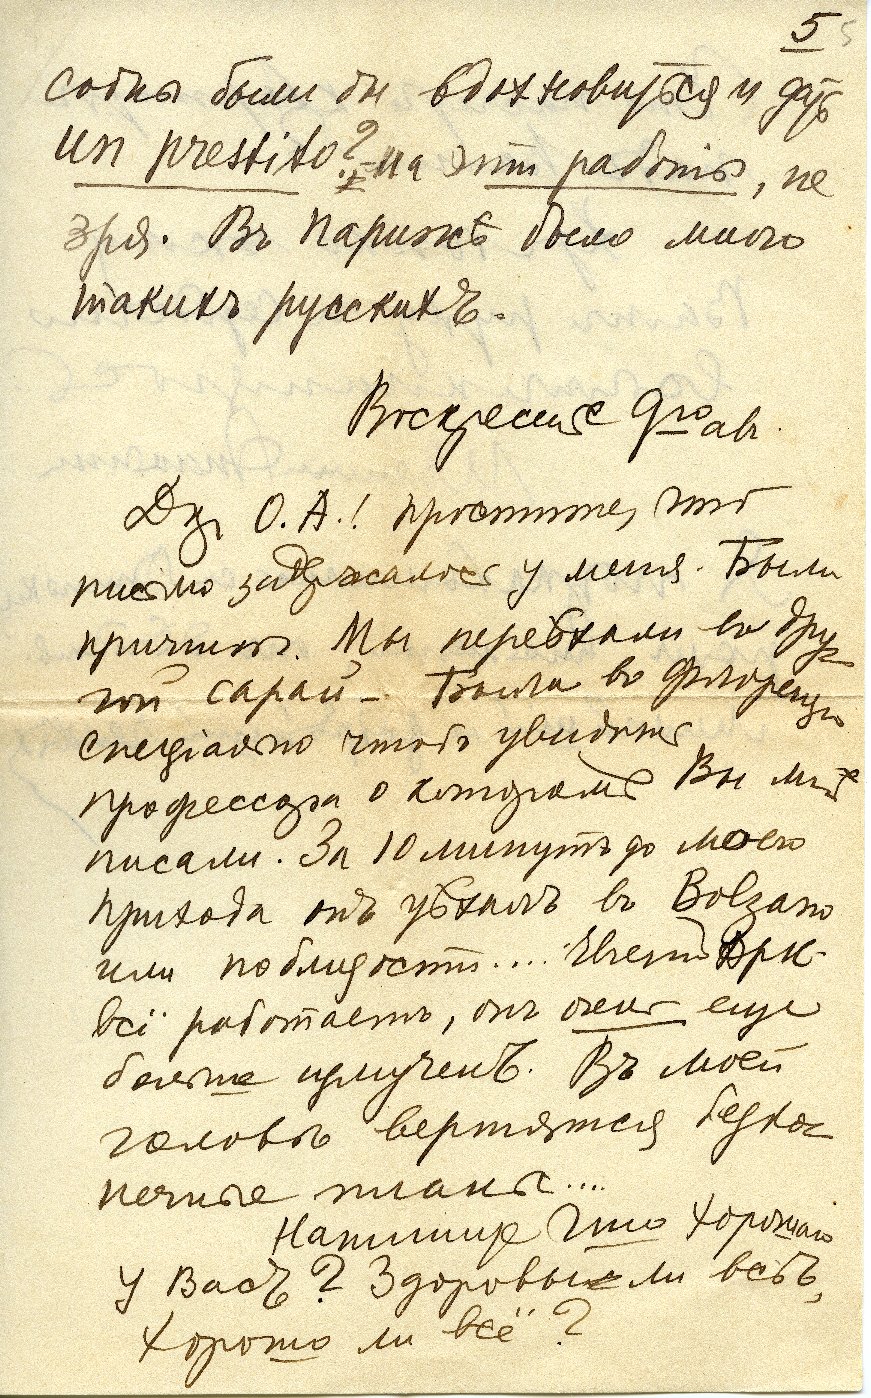 5 5
были бы вдохновиться и дать
un prestito? на эти работы, не
зря. Въ Парижѣ было много
такихъ русскихъ.
Воскресенье 9го авг.
О.А.! простите, что
письмо задержалось у меня. Были
причины. Мы переѣхали во дру-
гой сарай –. Была во Флоренцiи
спецiально чтобъ увидать
профессора о которомъ Вы мнѣ
писали. За 10 минутъ до моего
прихода онъ уѣхалъ въ Bolzano
или поблизости....
всё работаетъ, онъ очень еще
больше измученъ. Въ моей
головѣ вертятся безко-
нечные планы....
Напишите что хорошаго
у Васъ? Здоровы ли всѣ,
хорошо ли всё?